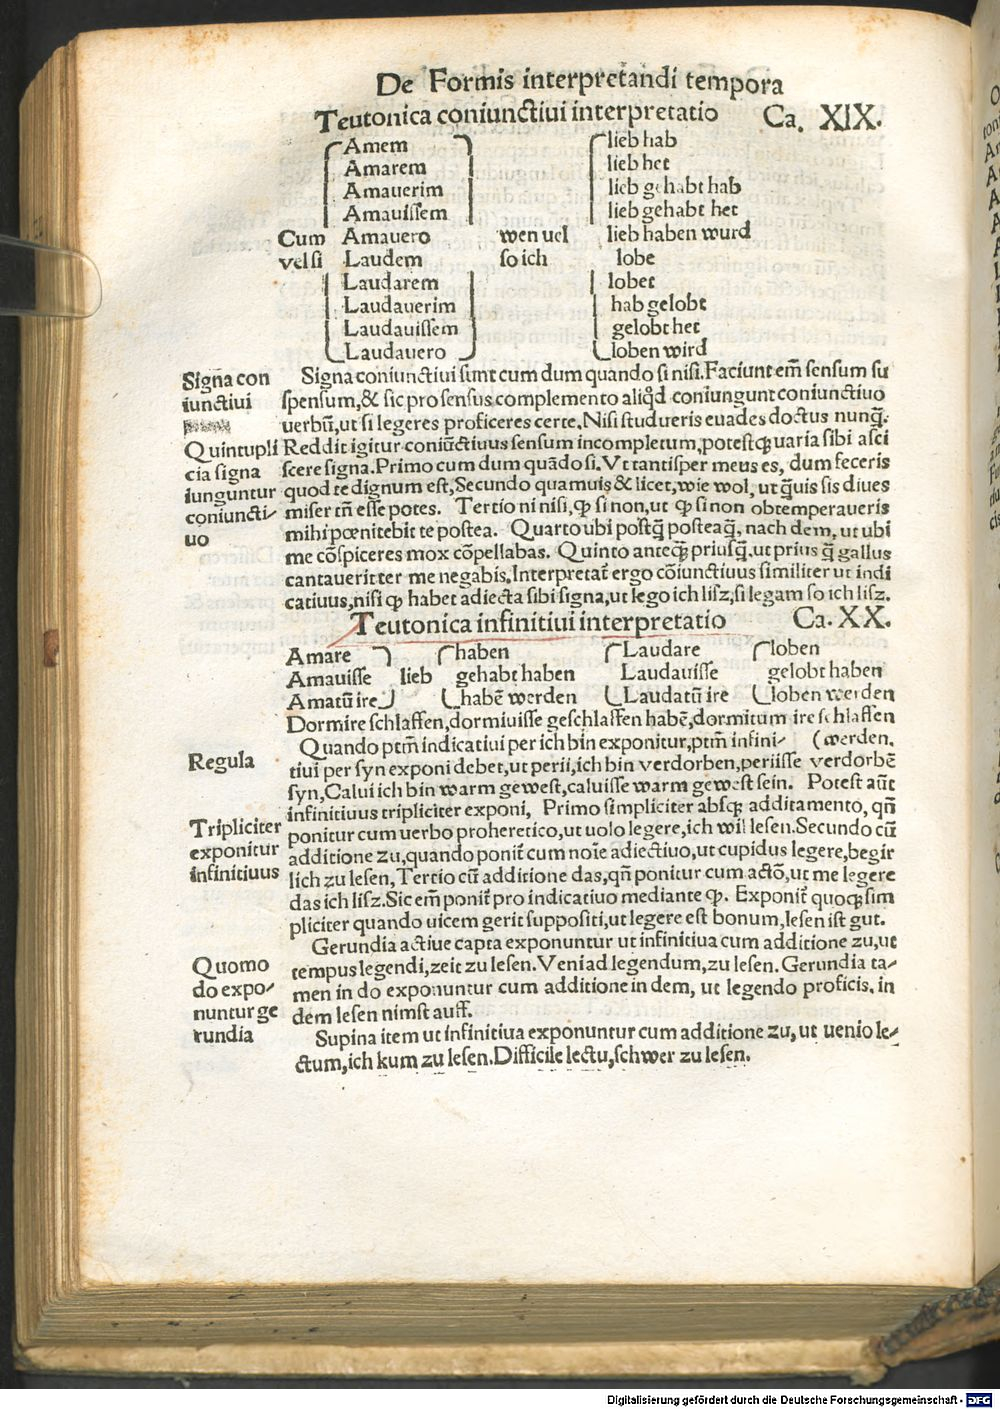 De Formis interpretandi tempora
Teutonica coniunctiui interpretatio Ca. XIX.
Amem lieb hab
Amarem lieb het
Amauerim lieb gehabt hab
Amauissem lieb gehabt het
Cum Amauero wen uel lieb haben wurd
vel si Laudem so ich lobe
Laudarem lobet
Laudauerim hab gelobt
Laudauissem gelobt het
Laudauero loben wird
Signa con
iunctiui
Signa coniunctiui sunt cum dum quando si nisi. Faciunt em̄ sensum su
spensum, & sic pro sensus complemento aliq̇d coniungunt coniunctiuo
uerbū, ut si legeres proficeres certe. Nisi studueris euades doctus nunq̄.
Quintupli
cia signa
iunguntur
coniuncti⸗
uo
Reddit igitur coniūctiuus sensum incompletum, potestq; uaria sibi asci
scere signa. Primo cum dum quādo si. Vt tantisper meus es, dum feceris
quod te dignum est, Secundo quamuis & licet, wie wol, ut q̇uis sis diues
miser tn̄ esse potes. Tertio ni nisi, ꝙ si non, ut ꝙ si non obtemperaueris
mihi pœnitebit te postea. Quarto ubi postq̄ posteaq̄, nach dem, ut ubi
me cōspiceres mox cōpellabas. Quinto anteq̄ priusq̄. ut prius q̄ gallus
cantauerit ter me negabis. Interpretat̄ ergo cōiunctiuus similiter ut indi
catiuus, nisi ꝙ habet adiecta sibi signa, ut lego ich lisz, si legam so ich lisz.
Teutonica infinitiui interpretatio Ca. XX.
Amare haben Laudare loben
Amauisse lieb gehabt haben Laudauisse gelobt haben
Amatū ire habē werden Laudatū ire loben werden
Dormire schlaffen, dormiuisse geschlaffen habē, dormitum ire schlaffen
Quando ptm̄ indicatiui per ich bin exponitur, ptm̄ infini⸗ (werden.
Regula
tiui per syn exponi debet, ut perii, ich bin verdorben, periisse verdorbē
syn, Calui ich bin warm gewest, caluisse warm gewest sein. Potest aūt
infinitiuus tripliciter exponi, Primo simpliciter absq; additamento, qn̄
Tripliciter
exponitur
infinitiuus
ponitur cum uerbo proheretico, ut uolo legere, ich wil lesen. Secundo cū
additione zu, quando ponit̄ cum noīe adiectiuo, ut cupidus legere, begir
lich zu lesen, Tertio cū additione das, qn̄ ponitur cum actō, ut me legere
das ich lisz. Sic em̄ ponit̄ pro indicatiuo mediante ꝙ. Exponit̄ quoq; sim
pliciter quando uicem gerit suppositi, ut legere est bonum, lesen ist gut.
Gerundia actiue capta exponuntur ut infinitiua cum additione zu, ut
Quomo
do expo⸗
nuntur ge
rundia
tempus legendi, zeit zu lesen. Veni ad legendum, zu lesen. Gerundia ta⸗
men in do exponuntur cum additione in dem, ut legendo proficis, in
dem lesen nimst auff.
Supina item ut infinitiua exponuntur cum additione zu, ut uenio le⸗
ctum, ich kum zu lesen. Difficile lectu, schwer zu lesen.
Digitalisierung gefördert durch die Deutsche Forschungsgemeinschaft - DFG